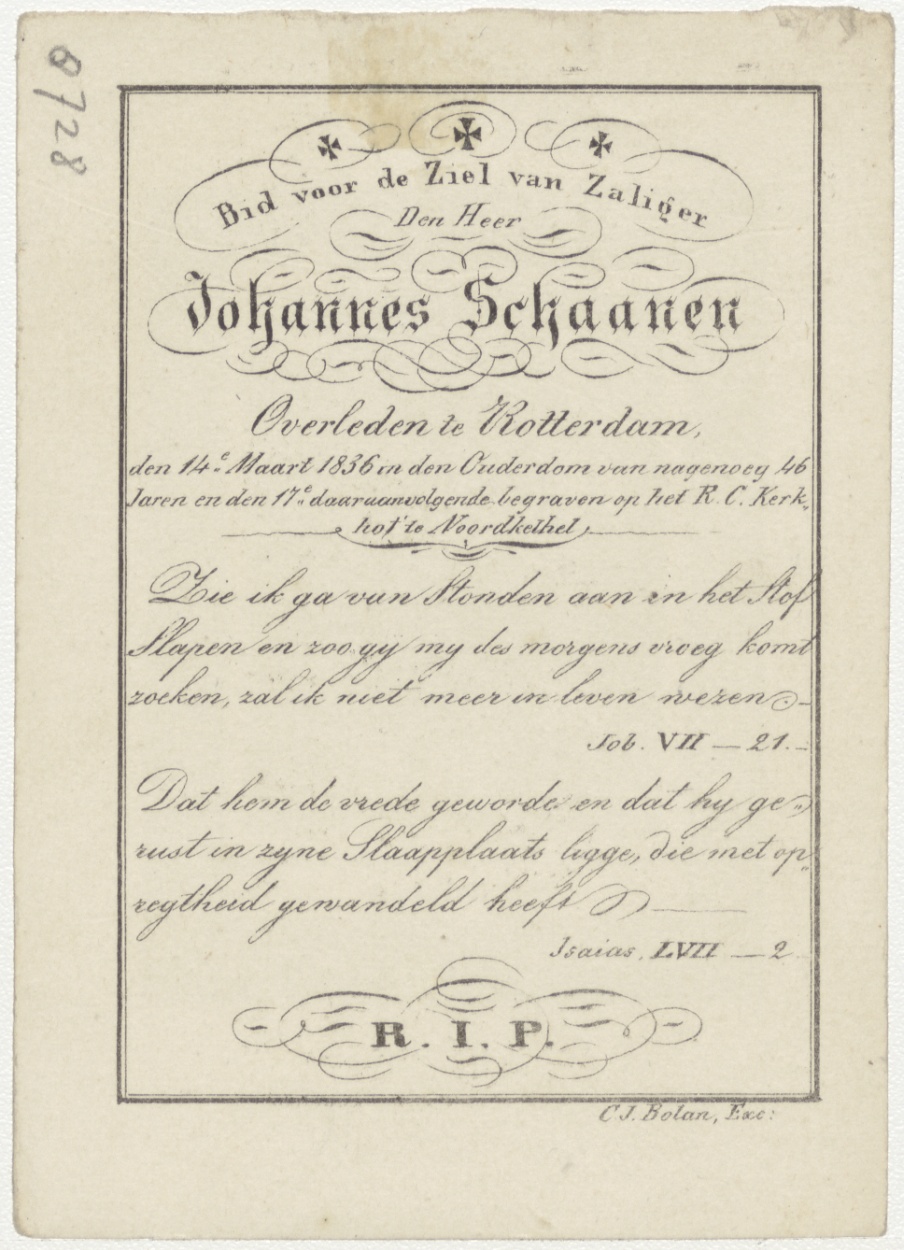 8728
Bid voor de Ziel van Zaliger
Den Heer
Johannes Schaanen
Overleden te Rotterdam,
den 14e. Maart 1836 in den Ouderdom van nagenoeg 46
Jaren en den 17e. daaraanvolgende begraven op het R. C. Kerk„
hof te Noordkethel
Zie ik ga van Stonden aan in het Stof
Slapen en zoo gy my des morgens vroeg komt
zoeken, zal ik niet meer in leven wezen
Job. VII — 21.
Dat hem de vrede geworde en dat hy ge„
rust in zyne Slaapplaats ligge, die met op„
regtheid gewandeld heeft
Isaias. LVII — 2
R. I. P.
C J. Bolan, Exc: